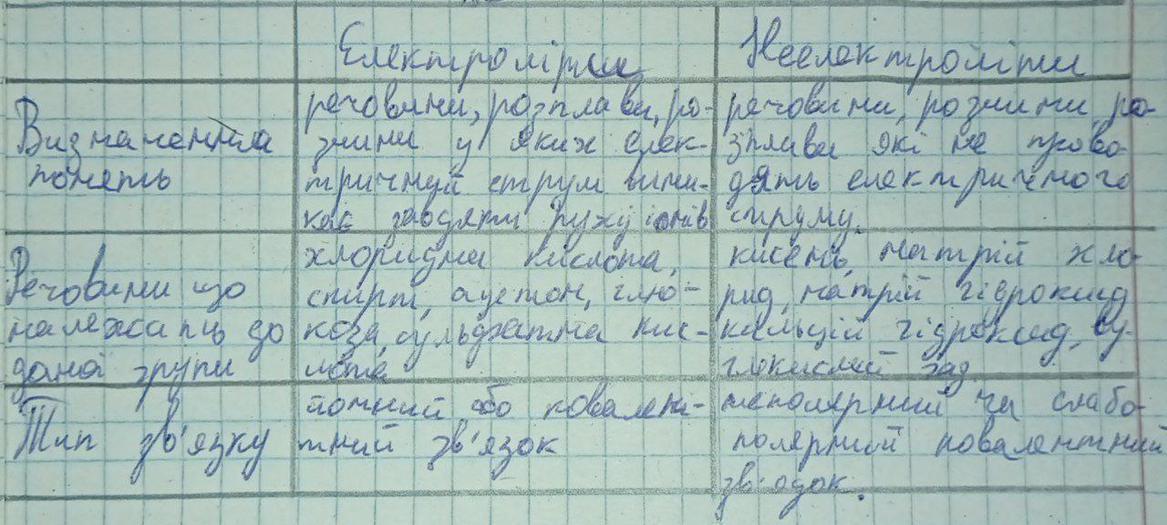 Електроліти
Неелектроліти
Визначення
понять
речовини, розплави, ро-
зчини у яких елек-
тричний струм вини-
кає завдяти руху іонів
речовини, розчини, ро-
зплави які не прово-
дять електричного
струму.
Речовини що
належать до
даної групи
хлоридна кислота,
спирт, ацетон, глю-
коза, сульфатна кис-
лота
кисень, натрій хло-
рид, натрій гідроксид
кальцій гідроксид, ву-
глекислий газ
Тип зв'язку
йонний або ковален-
тний зв'язок
неполярний чи слабо-
полярний ковалентний
зв'язок.